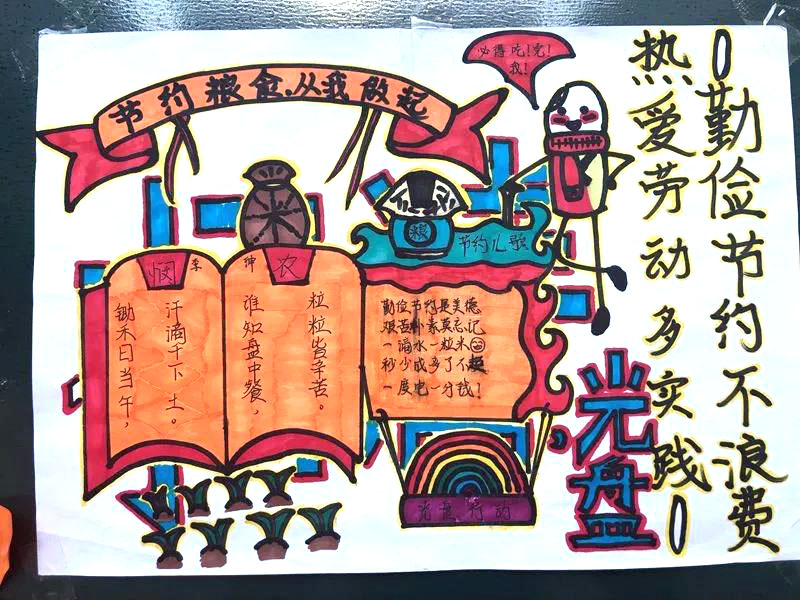 节约粮食.从我做起
必得吃!完!
我!
勤俭节约不浪费
热爱劳动多实践
米
粮
节约儿歌
悯 李
绅 农
锄禾日当午,
汗滴禾下土。
谁知盘中餐,
粒粒皆辛苦。
勤俭节约是美德
艰苦朴素莫忘记
一滴水一粒米
积少成多了不起
一度电一分钱!
光盘行动
光盘